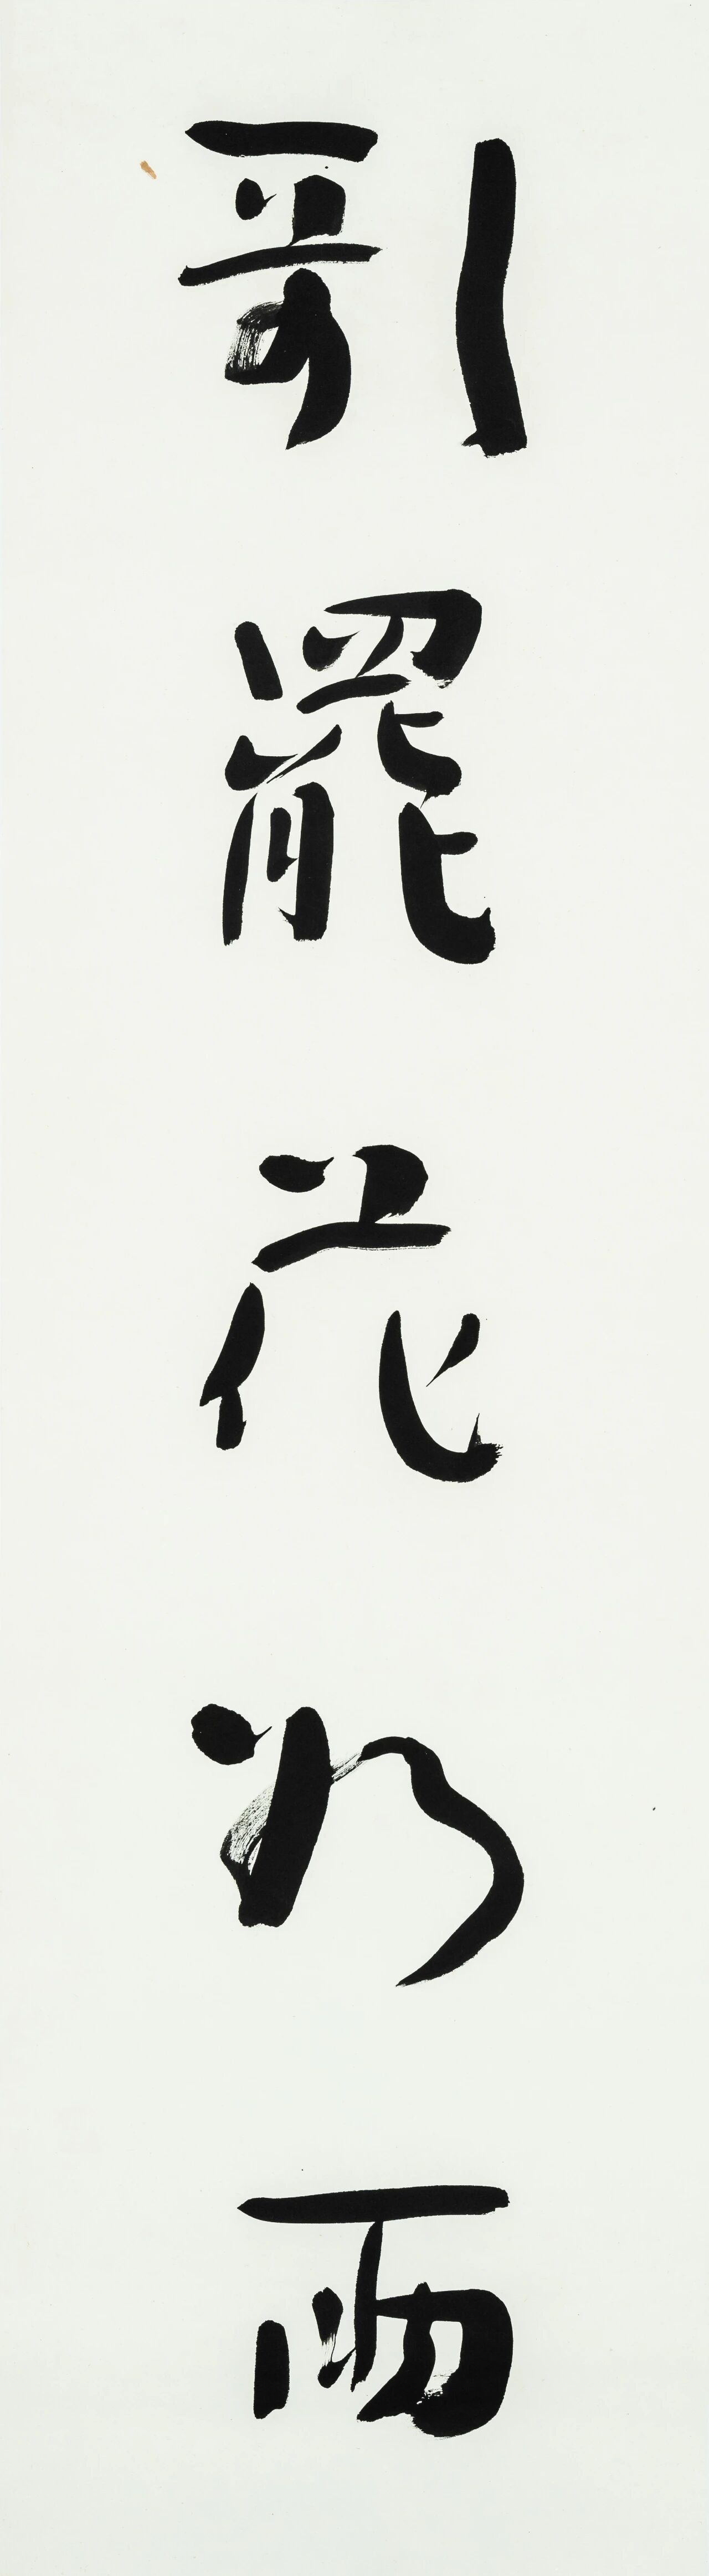 引罷花将雨